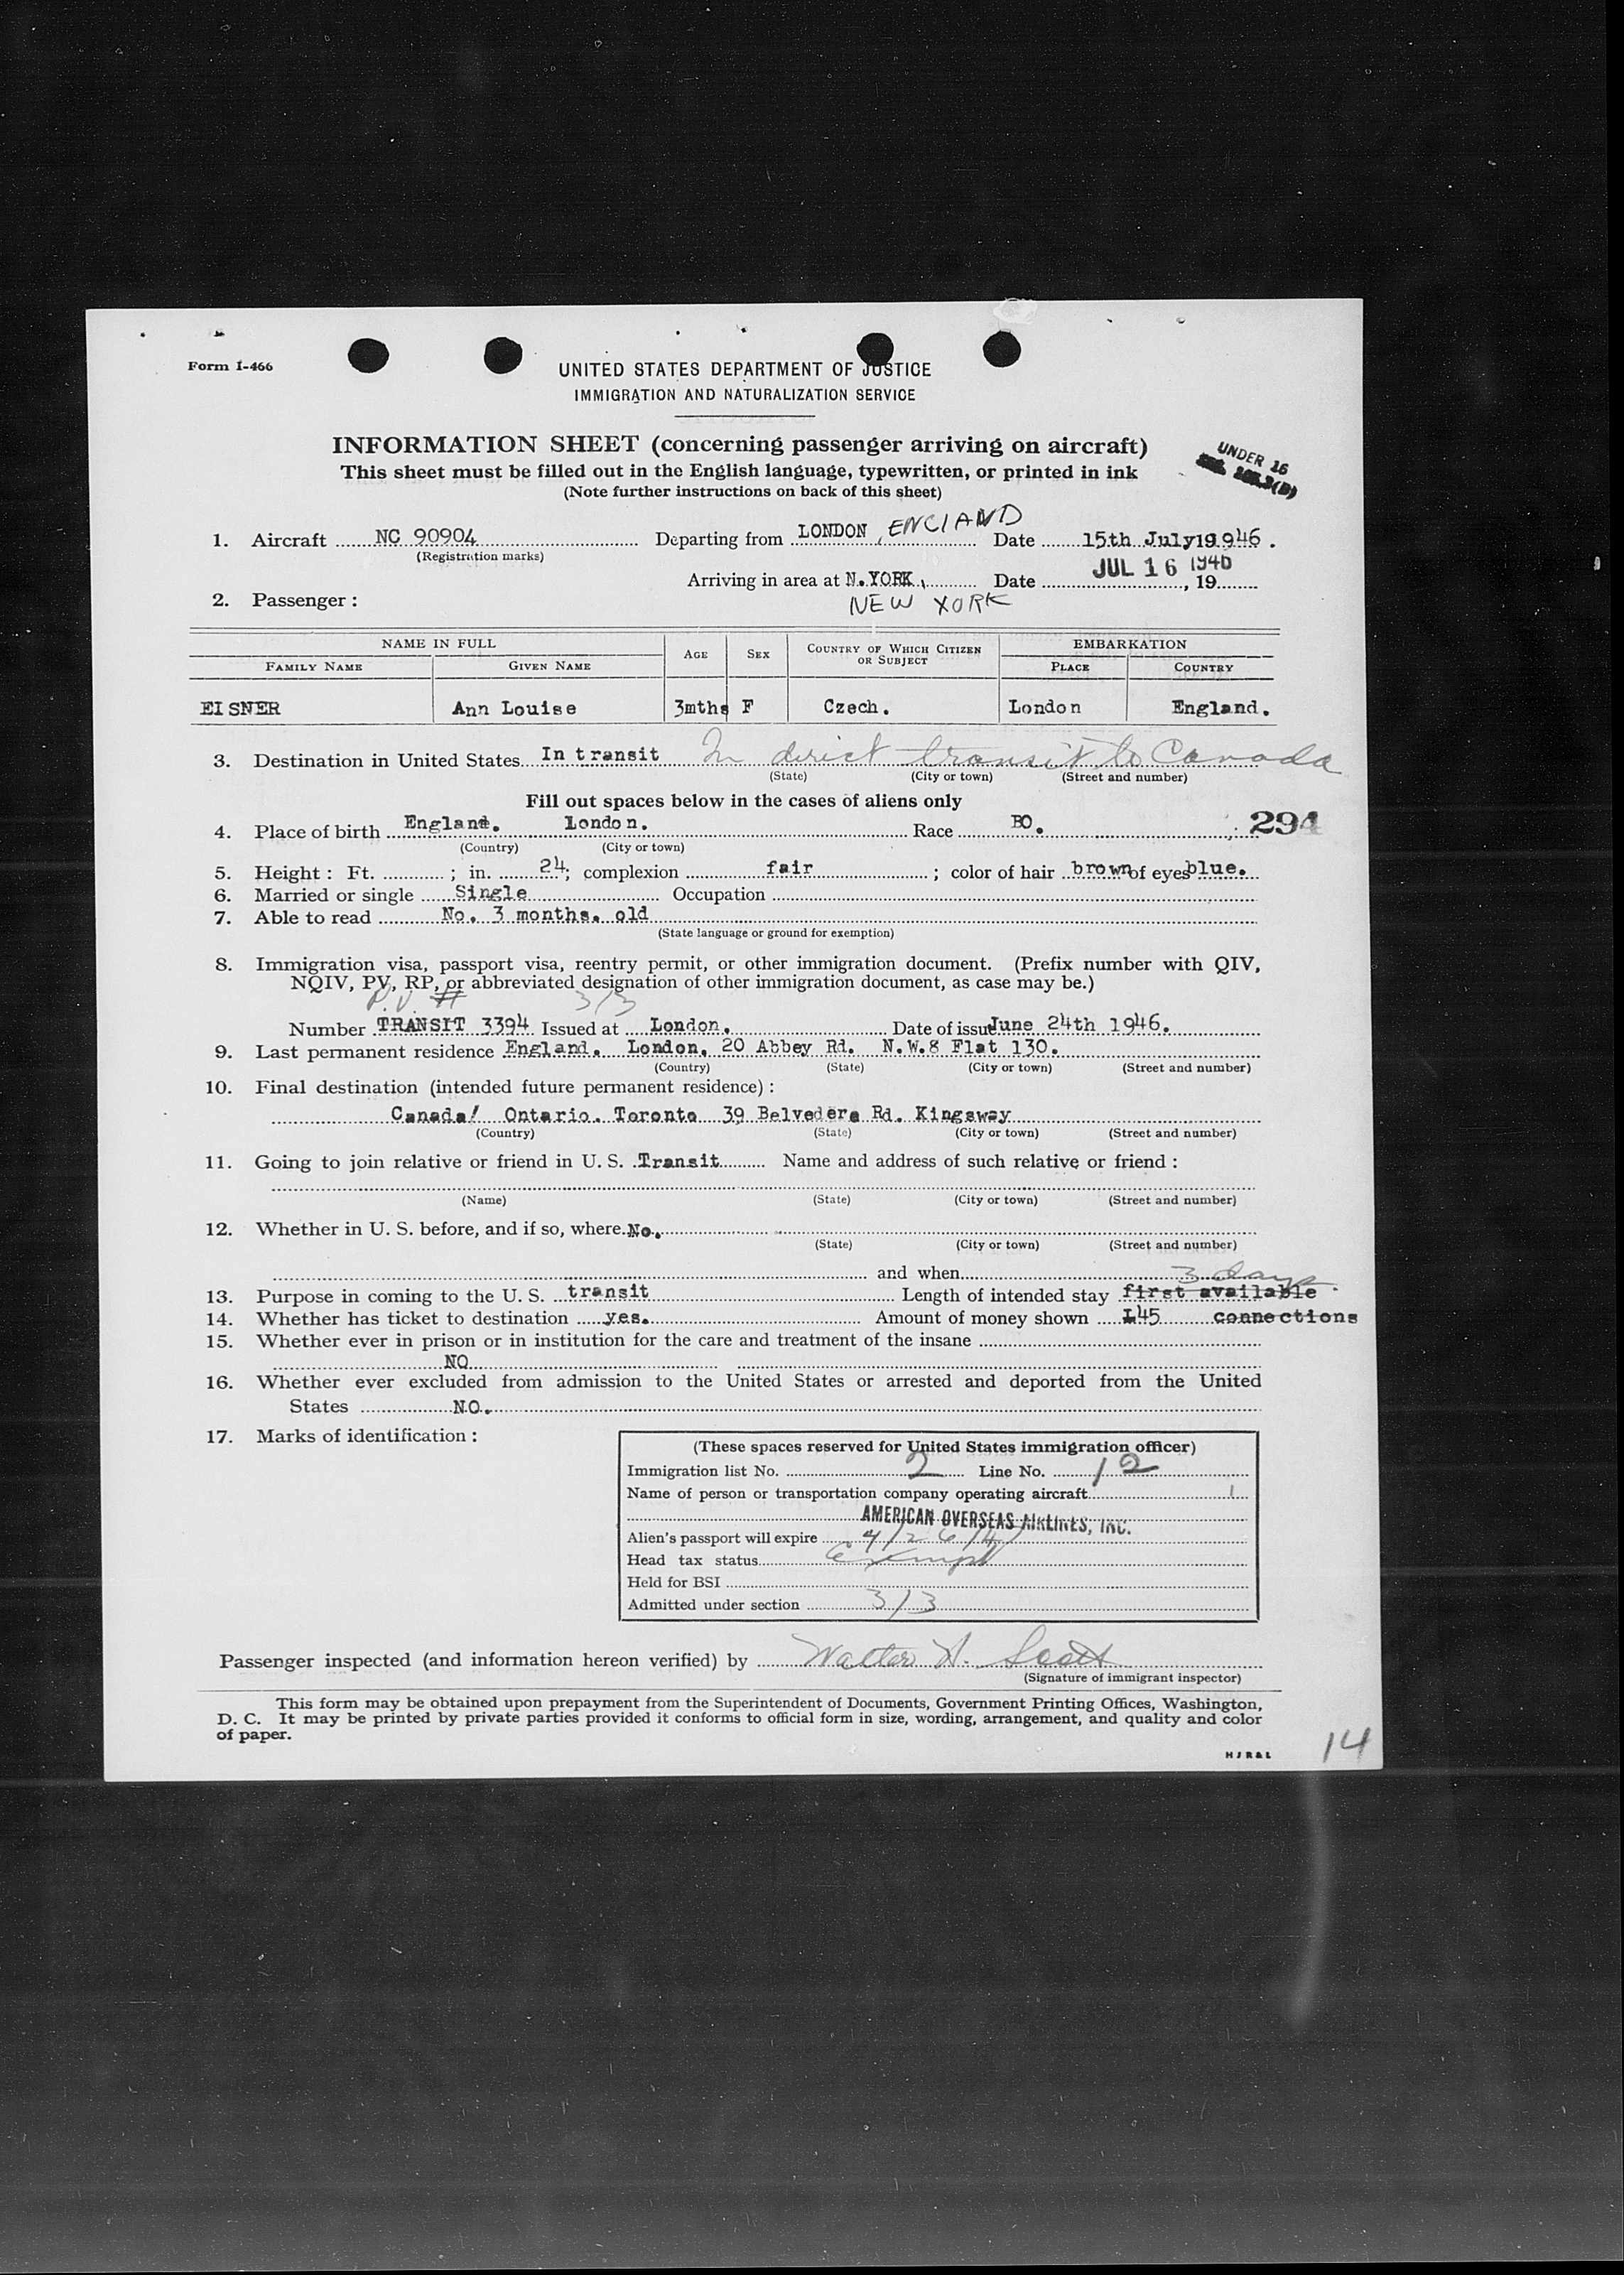 Form I-466
UNITED STATES DEPARTMENT OF JUSTICE
IMMIGRATION AND NATURALIZATION SERVICE
INFORMATION SHEET (concerning passenger arriving on aircraft)
This sheet must be filled out in the English language, typewritten, or printed in ink
(Note further instructions on back of this sheet)
UNDER 16
1. Aircraft NC 90904 Departing from LONDON, ENGLAND Date 15th July 19946.
(Registration marks)
Arriving in area at N.YORK, Date JUL 16 1946, 19
NEW YORK
2. Passenger:
NAME IN FULL AGE SEX COUNTRY OF WHICH CITIZEN OR SUBJECT EMBARKATION
FAMILY NAME GIVEN NAME PLACE COUNTRY
EISNER Ann Louise 3mths F Czech. London England.
3. Destination in United States In transit In direct transit to Canada
(State) (City or town) (Street and number)
Fill out spaces below in the cases of aliens only
4. Place of birth England. London. Race BO. 294
(Country) (City or town)
5. Height: Ft. ; in. 24; complexion fair ; color of hair brown of eyes blue.
6. Married or single Single Occupation
7. Able to read No. 3 months. old
(State language or ground for exemption)
8. Immigration visa, passport visa, reentry permit, or other immigration document. (Prefix number with QIV,
NQIV, PV, RP, or abbreviated designation of other immigration document, as case may be.)
P.V. # 3/3
Number TRANSIT 3394 Issued at London. Date of issue June 24th 1946.
9. Last permanent residence England. London. 20 Abbey Rd. N.W.8 Flat 130.
(Country) (State) (City or town) (Street and number)
10. Final destination (intended future permanent residence):
Canada! Ontario. Toronto 39 Belvedere Rd. Kingsway
(Country) (State) (City or town) (Street and number)
11. Going to join relative or friend in U. S. Transit Name and address of such relative or friend:
(Name) (State) (City or town) (Street and number)
12. Whether in U. S. before, and if so, where No.
(State) (City or town) (Street and number)
and when
3 days
13. Purpose in coming to the U. S. transit Length of intended stay first available
14. Whether has ticket to destination yes. Amount of money shown £45 connections
15. Whether ever in prison or in institution for the care and treatment of the insane
NO
16. Whether ever excluded from admission to the United States or arrested and deported from the United
States NO.
17. Marks of identification:
(These spaces reserved for United States immigration officer)
Immigration list No. 2 Line No. 12
Name of person or transportation company operating aircraft
AMERICAN OVERSEAS AIRLINES, INC.
Alien's passport will expire 4/26/47
Head tax status Exempt
Held for BSI
Admitted under section 3/3
Passenger inspected (and information hereon verified) by Walter H. Scott
(Signature of immigrant inspector)
This form may be obtained upon prepayment from the Superintendent of Documents, Government Printing Offices, Washington,
D. C. It may be printed by private parties provided it conforms to official form in size, wording, arrangement, and quality and color
of paper.
HJR&L
14